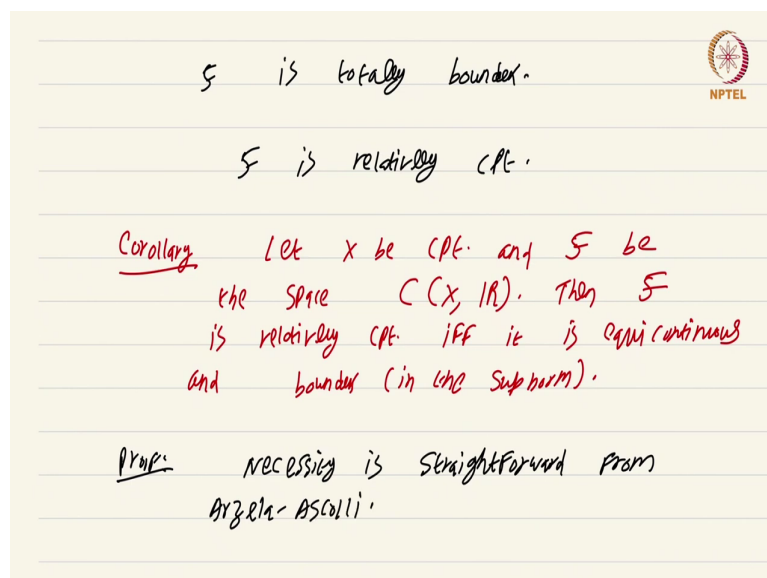 F is totally bounded.
NPTEL
F is relatively cpt.
Corollary Let X be cpt. and F be
the space C(X, IR). Then F
is relatively cpt. iff it is equicontinuous
and bounded (in the sup norm).
Proof: Necessity is straightforward from
Arzela-Ascolli.